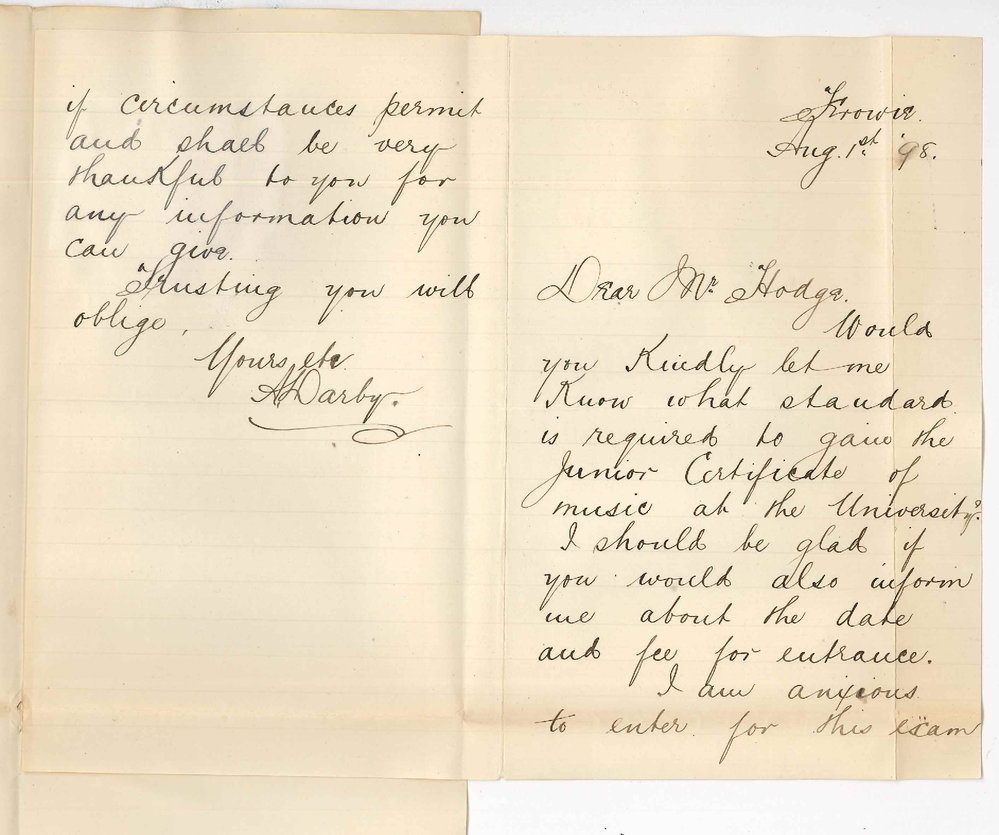 Frowie.
Aug. 1st. '98.
Dear Mr Hodge.
Would
you Kindly let me
Know what standard
is required to gain the
Junior Certificate of
music at the University?
I should be glad if
you would also inform
me about the date
and fee for entrance.
I am anxious
to enter for this exam
if circumstances permit
and shall be very
thankful to you for
any information you
can give.
Trusting you will
oblige,
Yours, etc.
A Darby.